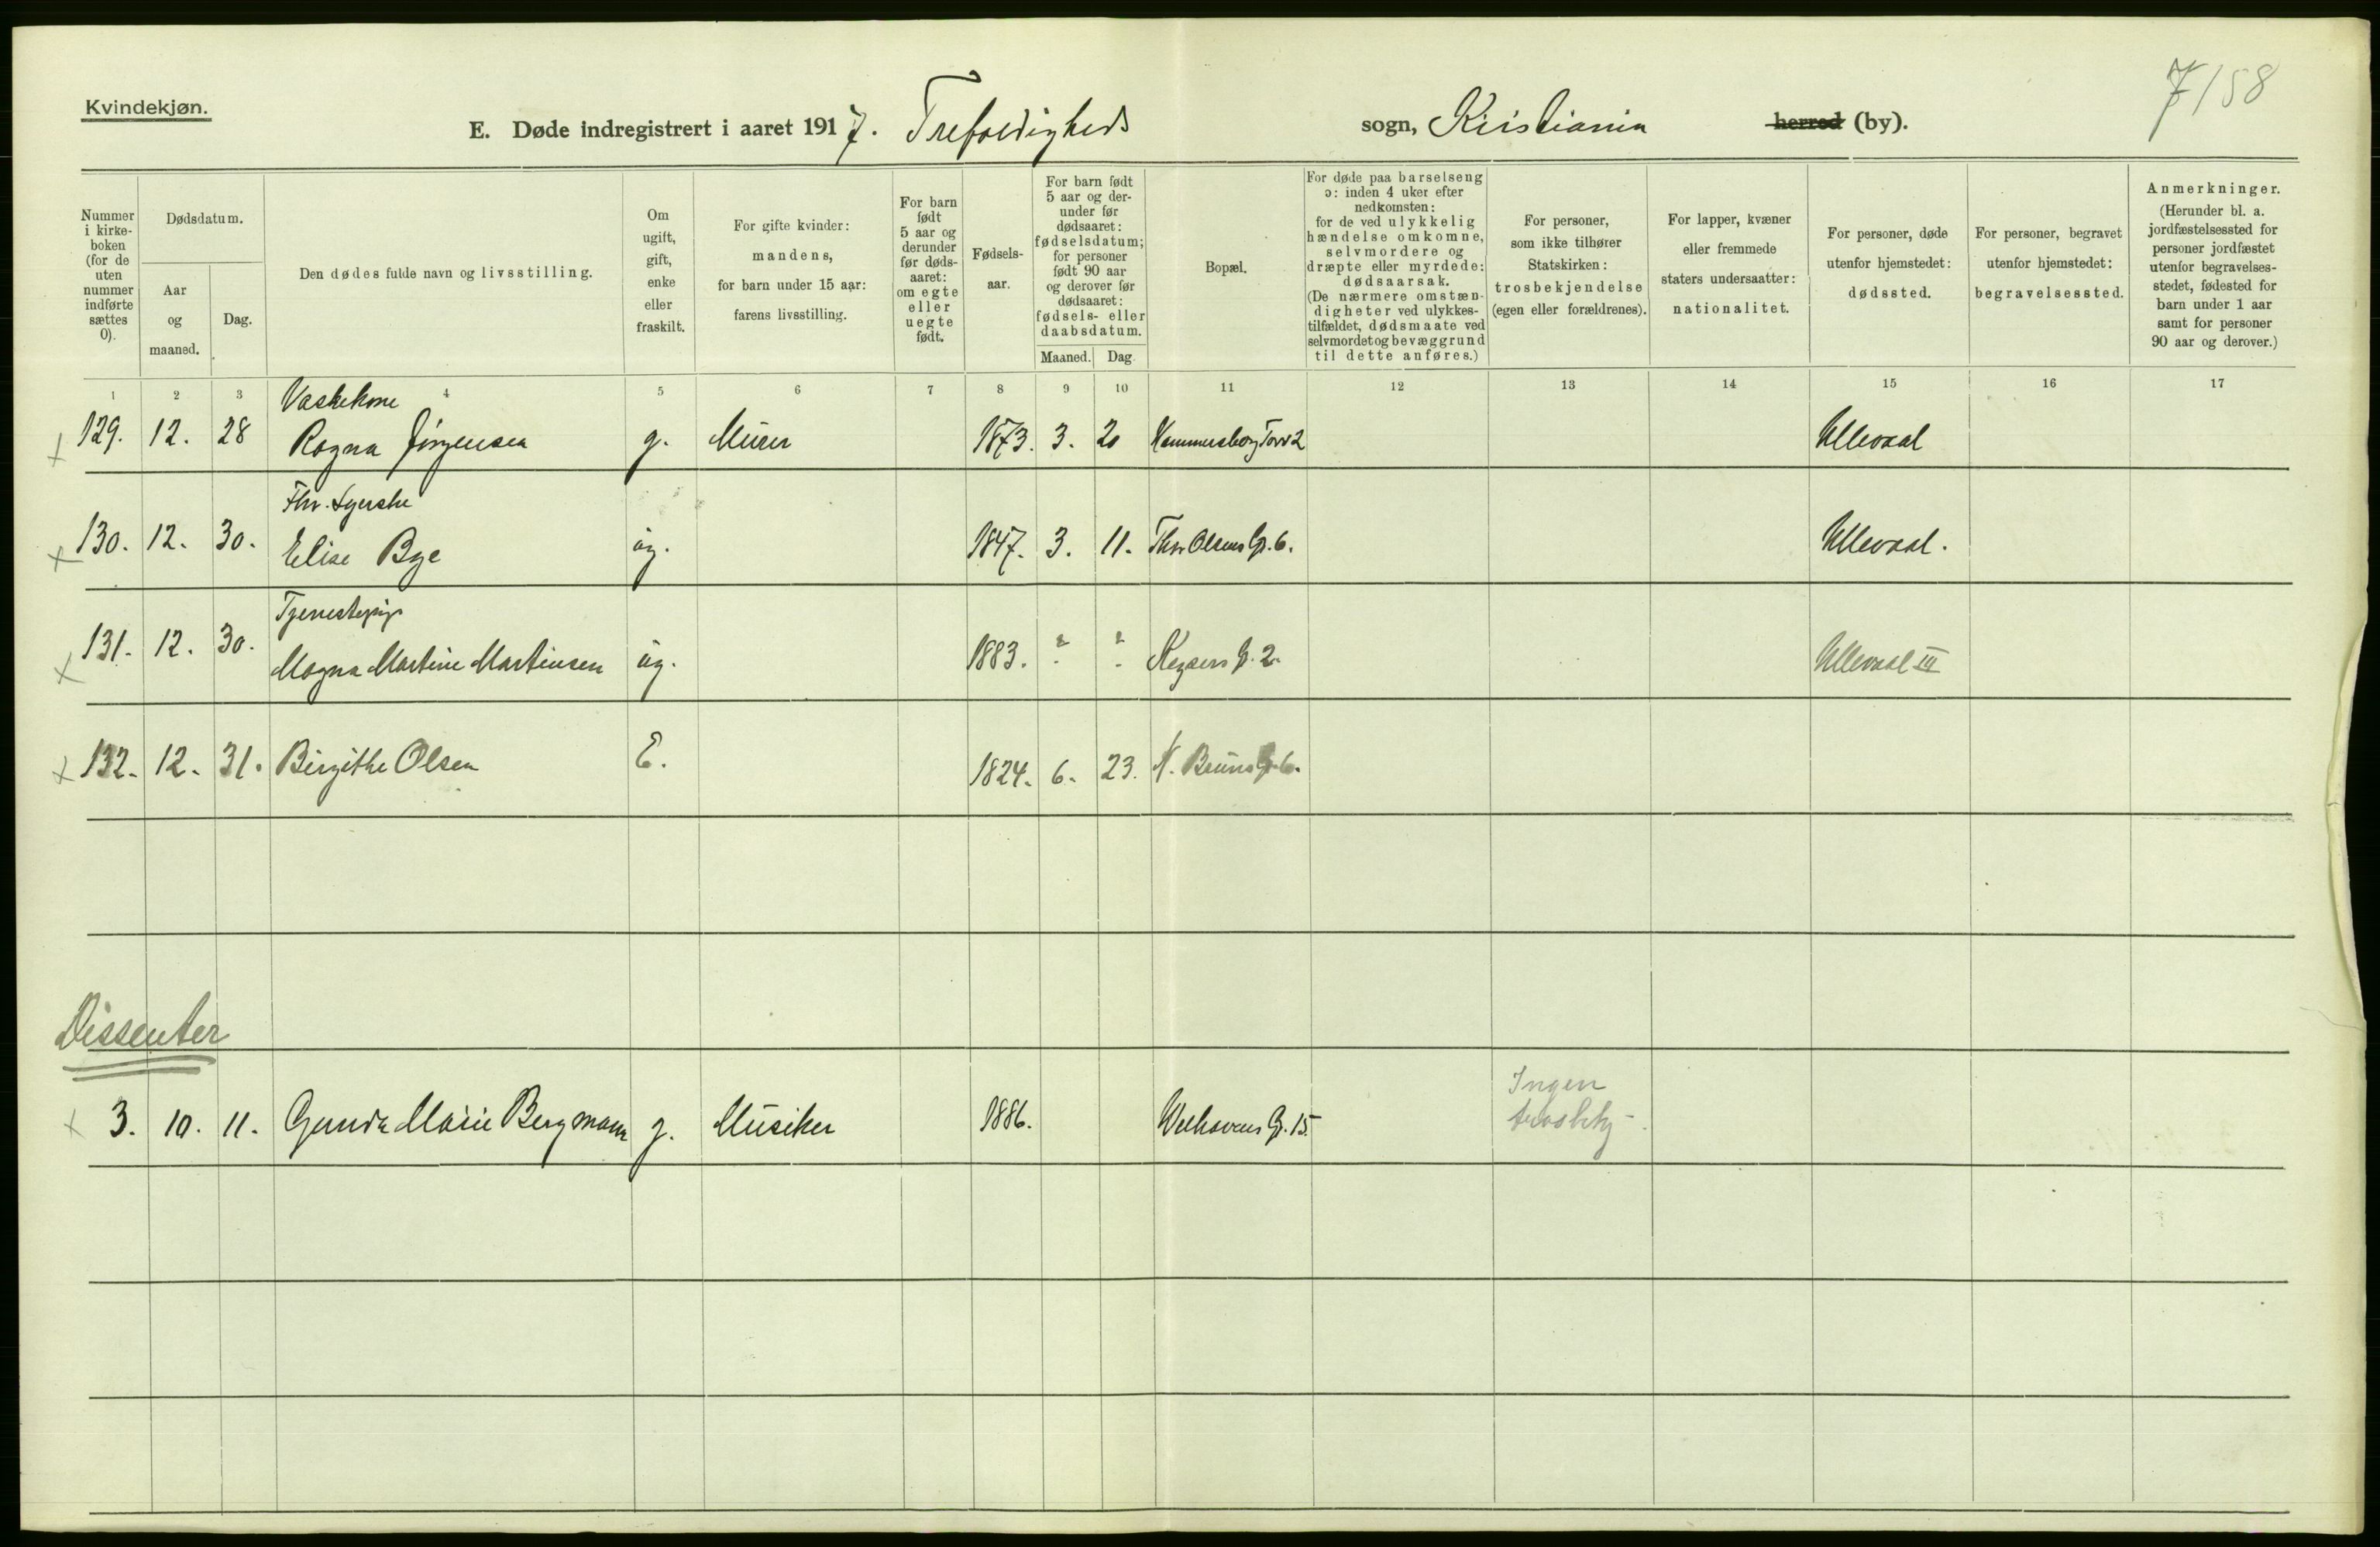 7/58
Kvindekjøn.
E. Døde indregistrert i aaret 1917. Trefoldigheds sogn, Kristiania herred (by).
Nummer i kirke-boken (for de uten nummer indførte sættes 0).
Dødsdatum.
Aar og maaned.
Dag.
Den dødes fulde navn og livsstilling.
Om ugift, gift, enke eller fraskilt.
For gifte kvinder: mandens, for barn under 15 aar: farens livsstilling.
For barn født 5 aar og derunder før døds-aaret: om egte eller uegte født.
Fødsels-aar.
For barn født 5 aar og der-under før dødsaaret: fødselsdatum; for personer født 90 aar og derover før dødsaaret: fødsels- eller daabsdatum.
Maaned. Dag.
Bopæl.
For døde paa barselseng ɔ: inden 4 uker efter nedkomsten: for de ved ulykkelig hændelse omkomne, selvmordere og dræpte eller myrdede: dødsaarsak. (De nærmere omstæn-digheter ved ulykkes-tilfældet, dødsmaate ved selvmordet og bevæggrund til dette anføres.)
For personer, som ikke tilhører Statskirken: trosbekjendelse (egen eller forældrenes).
For lapper, kvæner eller fremmede staters undersaatter: nationalitet.
For personer, døde utenfor hjemstedet: dødssted.
For personer, begravet utenfor hjemstedet: begravelsessted.
Anmerkninger. (Herunder bl. a. jordfæstelsessted for personer jordfæstet utenfor begravelses-stedet, fødested for barn under 1 aar samt for personer 90 aar og derover.)
1 2 3 4 5 6 7 8 9 10 11 12 13 14 15 16 17
Vaskekone
129. 12. 28 Ragna Jørgensen g. Murer 1873. 3. 20 Hammersborg Torv 2 Ullevaal
Fhv. Syerske
130. 12. 30. Elise Bye ug. 1847. 3. 11. Thv Olsens G. 6. Ullevaal.
Tjenestepige
131. 12. 30. Magna Martine Martinsen ug. 1883. ? ? Keysers G. 2. Ullevaal III
132. 12. 31. Birgithe Olsen E. 1824. 6. 23. N. Bruns G. 6.
Dissenter
Ingen
3. 10. 11. Gunda Marie Bergmann g. Musiker 1886. Welhavens G. 15. trosbekj-